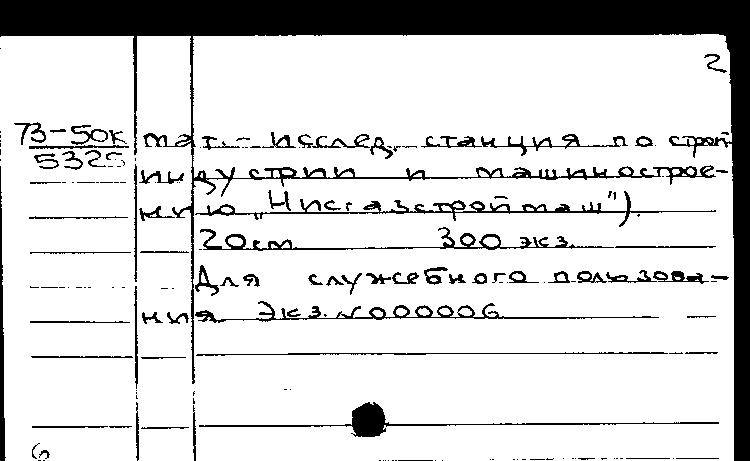 2
73-50к мат. - исслед. станция по строй-
5325
индустрии и машинострое-
нию „Нисгазстроймаш").
20см 300 экз.
Для служебного пользова-
ния Экз. №000006
6